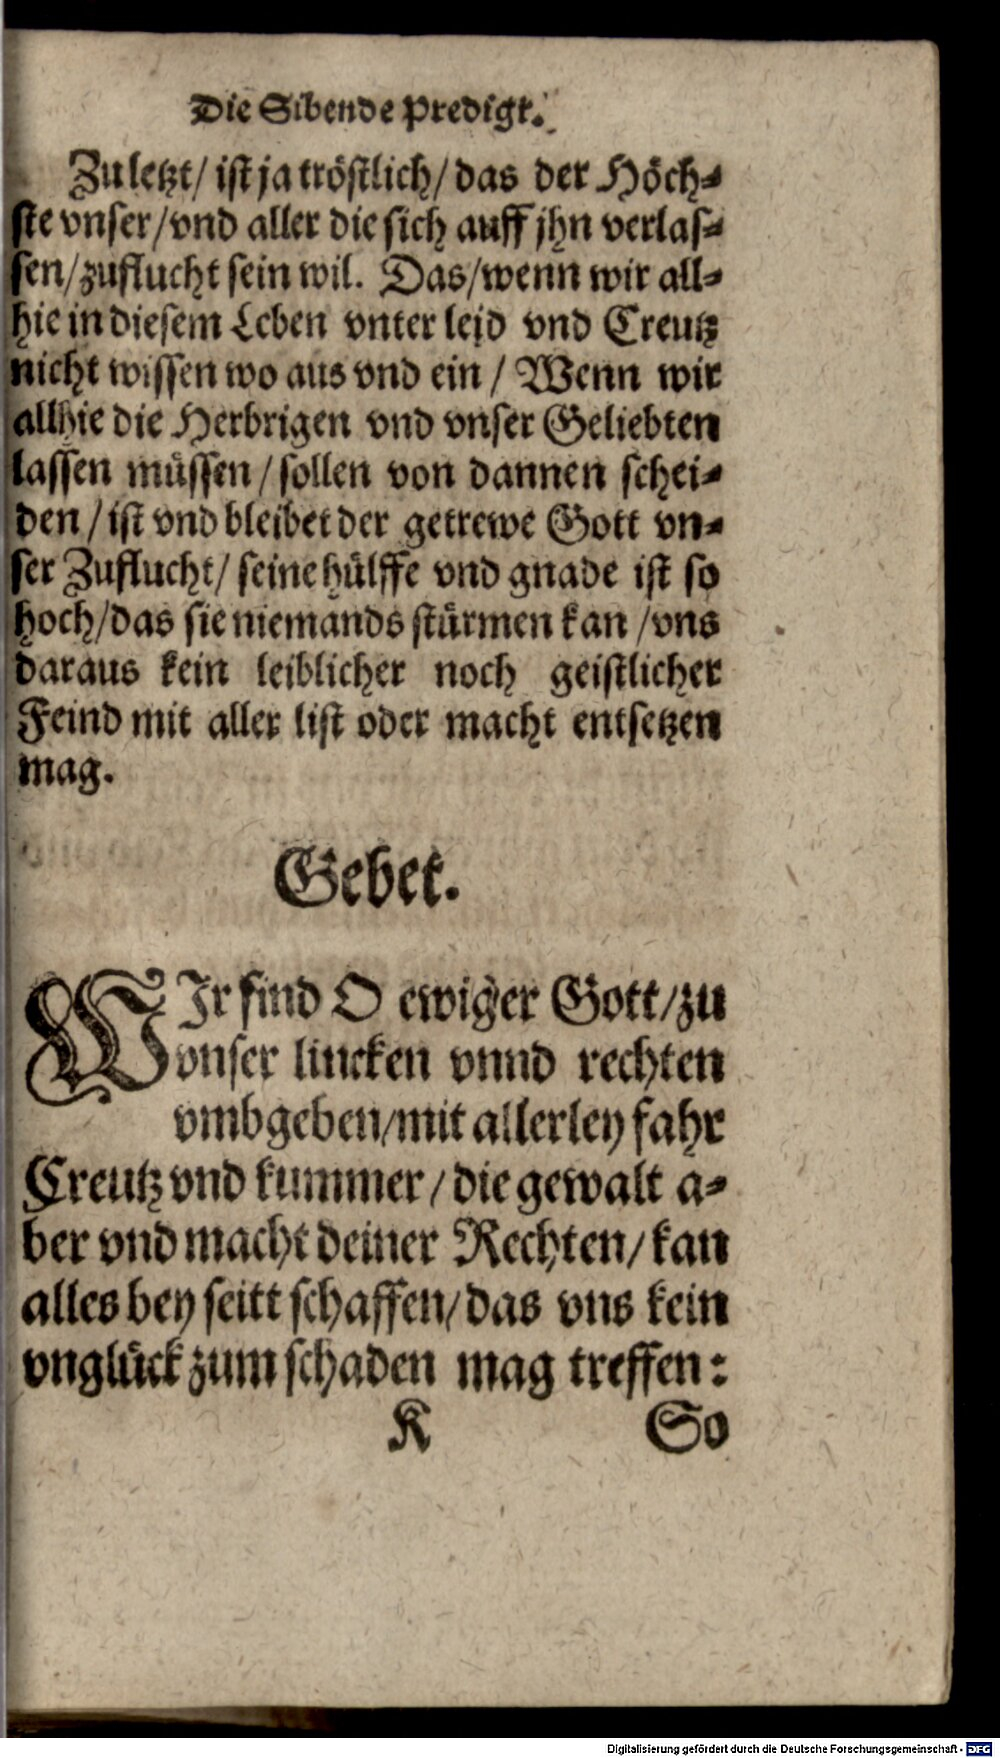 Die Sibende Predigt.
Zu letzt/ ist ja tröstlich/ das der Höch-
ste vnser/ vnd aller die sich auff jhn verlas-
sen/ zuflucht sein wil. Das/ wenn wir all-
hie in diesem Leben vnter leid vnd Creutz
nicht wissen wo aus vnd ein / Wenn wir
allhie die Herbrigen vnd vnser Geliebten
lassen müssen / sollen von dannen schei-
den / ist vnd bleibet der getrewe Gott vn-
ser Zuflucht/ seine hülffe vnd gnade ist so
hoch/ das sie niemands stürmen kan / vns
daraus kein leiblicher noch geistlicher
Feind mit aller list oder macht entsetzen
mag.
Gebet.
WJr sind O ewiger Gott/ zu
vnser lincken vnnd rechten
vmbgeben/ mit allerley fahr
Creutz vnd kummer / die gewalt a-
ber vnd macht deiner Rechten/ kan
alles bey seitt schaffen/ das vns kein
vnglück zum schaden mag treffen:
K So
Digitalisierung gefördert durch die Deutsche Forschungsgemeinschaft - DFG